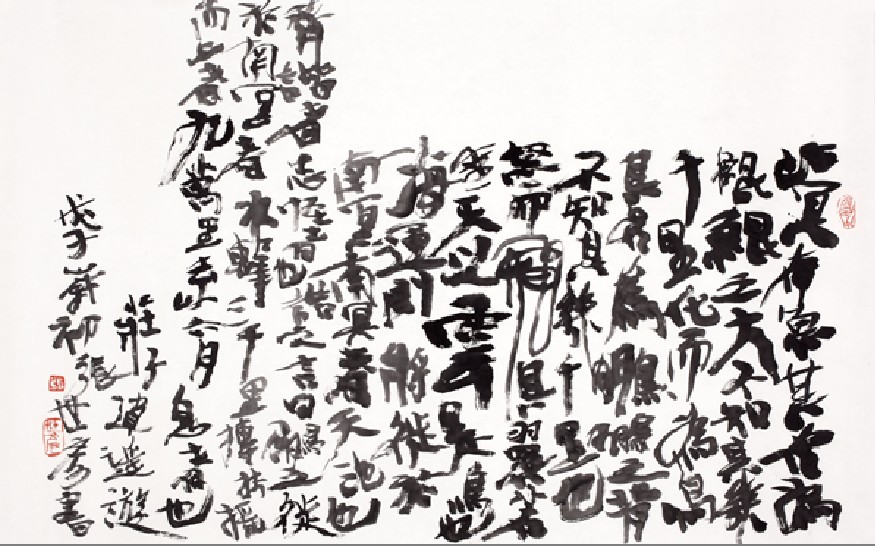 北冥有魚其名為
鯤鯤之大不知其幾
千里化而為鳥
其名為鵬鵬之背
不知其幾千里也
怒而飛其翼若
垂天之雲是鳥也
海運則將徙於
南冥南冥者天池也
齊諧者志怪者也諧之言曰鵬之徙
於南冥者水擊三千里摶扶搖
而上者九萬里去以六月息者也
莊子逍遙遊
戊子歲初張世彥書